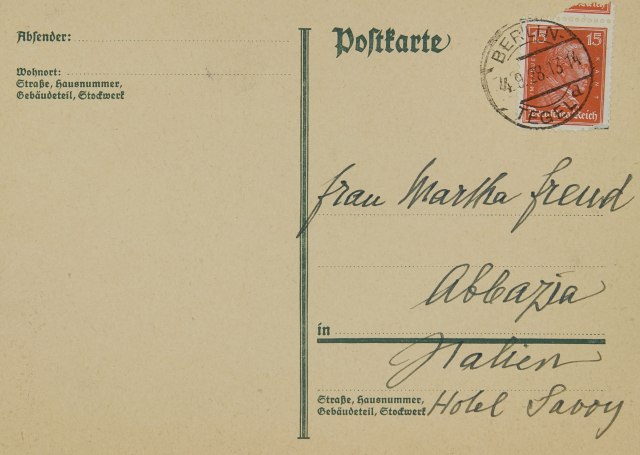 Absender:
Wohnort:
Straße, Hausnummer,
Gebäudeteil, Stockwerk
Postkarte
BERLIN-
TEGEL
15 15
KANT
Deutsches Reich
Frau Martha Freud
Abbazia
in
Italien
Straße, Hausnummer,
Gebäudeteil, Stockwerk
Hotel Savoy